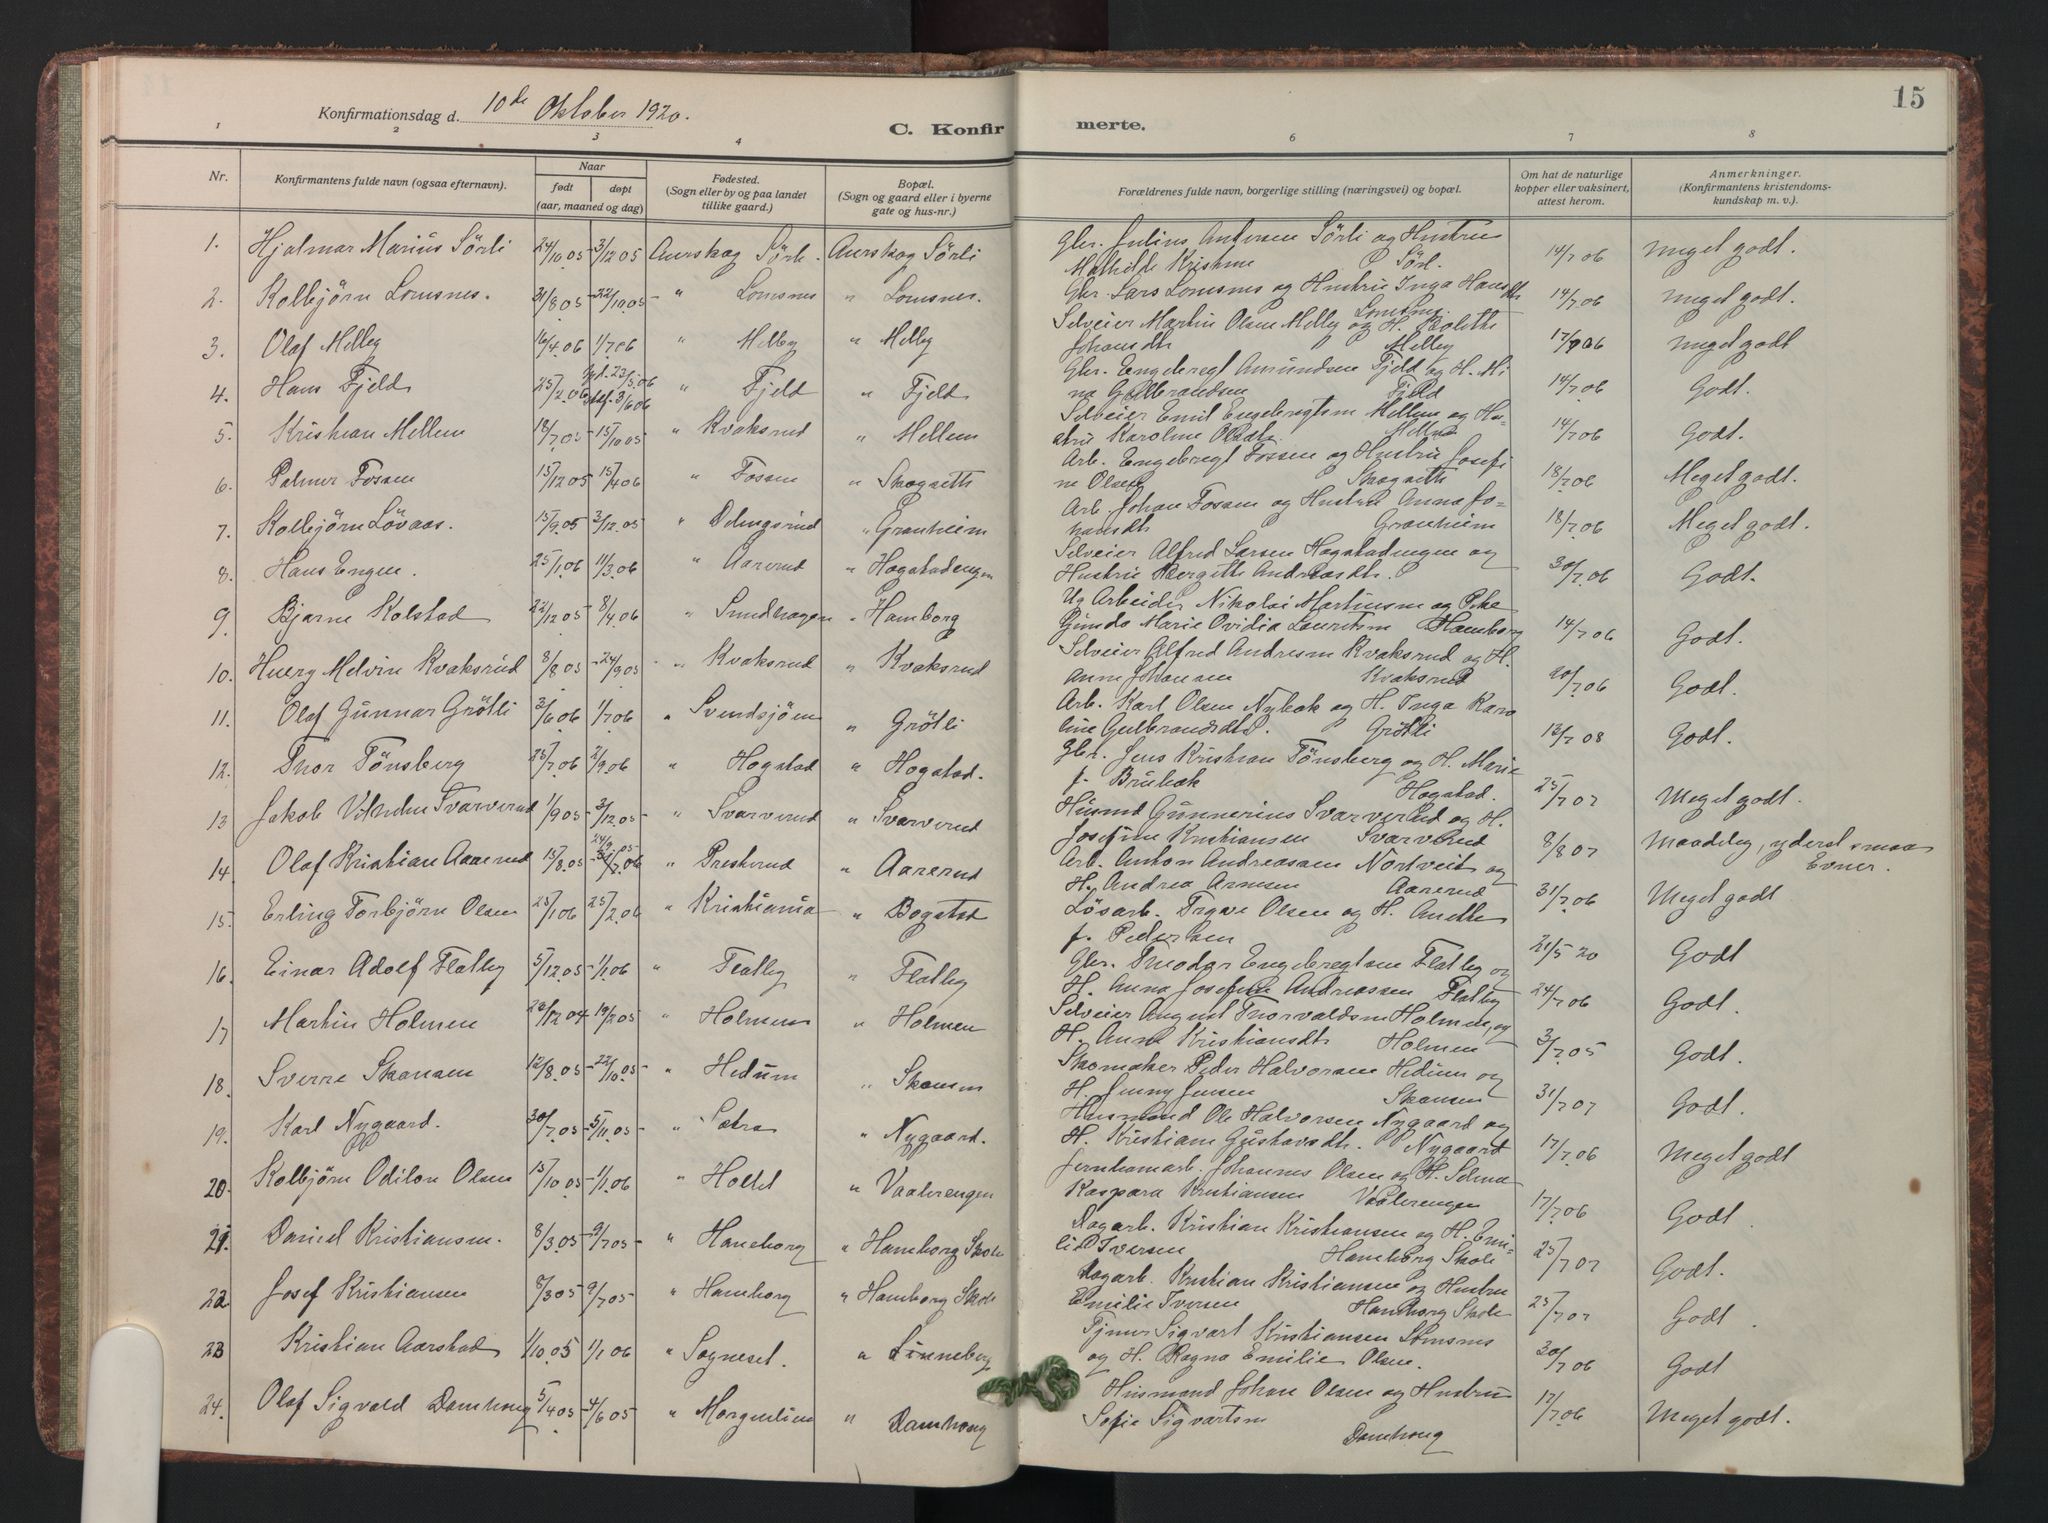 15
Konfirmationsdag d. 10de Oktober 1920.
C. Konfirmerte.
1 2 3 4 6 7 8
Nr. Konfirmantens fulde navn (ogsaa efternavn). Naar født døpt (aar, maaned og dag) Fødested. (Sogn eller by og paa landet tillike gaard.) Bopæl. (Sogn og gaard eller i byerne gate og hus-nr.) Forældrenes fulde navn, borgerlige stilling (næringsvei) og bopæl. Om hat de naturlige kopper eller vaksinert, attest herom. Anmerkninger. (Konfirmantens kristendomskundskap m. v.).
1. Hjalmar Marius Sörli 24/10 05 3/12 05 Aurskog Sörli Aurskog Sörli Gbr. Julius Andersen Sörli og Hustru 14/7 06 Meget godt.
Mathilde Kristine Sörl.
2. Kolbjörn Lomsnes. 31/8 05 22/10 05 " Lomsnes " Lomsnes. Gbr. Lars Lomsnes og Hustru Inga Hansdtr 14/7 06 Meget godt.
Lomsnes
3. Olaf Melleby 16/4 06 1/7 06 " Melleby " Melleby Selveier Martin Olsen Melleby og H. Bolethe 17/7 06 Meget godt
Johansdtr Melleby
4. Hans Fjeld 25/2 06 hjd. 23/5 06 stadf. 3/6 06 " Fjeld " Fjeld Gbr. Engebregt Amundsen Fjeld og H. Mi 14/7 06 Godt.
na Gulbrandsen Fjeld
5. Kristian Mellem 18/7 05 15/10 05 " Kvaksrud " Mellem Selveier Emil Engebregtsen Mellem og Hu- 14/7 06 Godt.
stru Karoline Olsdtr. Mellem
6. Palmer Fossen 15/12 05 15/4 06 " Fossen " Skogseth Arb. Engebregt Fossen og Hustru Josefi 18/7 06 Meget godt.
ne Olsen Skogseth
7. Kolbjörn Lövaas. 15/9 05 3/12 05 " Delingsrud " Granheim Arb. Johan Fossen og Hustru Anna Jo- 18/7 06 Meget godt.
hansdtr Granheim
8. Hans Engen. 25/1 06 11/3 06 " Aarerud " Hogstadengen Selveier Alfred Larsen Hogstadengen og 30/7 06 Godt.
Hustru Bergithe Andreasdtr.
9. Bjarne Kolstad 22/12 05 8/4 06 " Sundhagen " Hamborg Ug Arbeider Nikolai Martinsen og Pike 14/7 06 Godt.
Gunda Marie Ovidia Lauritsen Hamborg
10. Huerg Melvin Kvaksrud 8/8 05 24/9 05 " Kvaksrud " Kvaksrud Selveier Alfred Andresen Kvaksrud og H. 20/7 06 Godt.
Anne Johansen Kvaksrud
11. Olaf Gunnar Grötli 3/6 06 1/7 06 " Svendsjöen " Grötli Arb. Karl Olsen Nybak og H. Inga Karo 12/7 08 Godt.
line Gulbrandsdtr. Grötli
12. Thor Tönsberg 25/7 06 2/9 06 " Hogstad " Hogstad. Gbr. Jens Kristian Tönsberg og H. Marie 25/7 07 Meget godt.
f. Brubak Hogstad.
13 Jakob Vilhelm Svarverud 1/9 05 3/12 05 " Svarverud " Svarverud Husmd Gunnerius Svarverud og H. 8/8 07 Maadelig, yderst smaa
Josefine Kristiansen Svarverud Evner.
14. Olaf Kristian Aarerud 15/8 05 24/9 05 7 06 " Presterud " Aarerud Arb. Anton Andreassen Nortveit og 31/7 06 Meget godt
H. Andrea Arnesen Aarerud
15. Erling Torbjörn Olsen 25/1 06 25/2 06 " Kristiania " Bogstad Lösarb. Trygve Olsen og H. Anette 21/5 20 Godt
f. Pedersen
16. Einar Adolf Flatby 5/12 05 1/1 06 " Flatby " Flatby Gbr. Theodor Engebregtsen Flatby og 24/7 06 Godt.
H. Anna Josefine Andreassen Flatby
17 Martin Holmen 28/12 04 19/2 05 " Holmen " Holmen Selveier August Thorvaldsen Holmen, og 3/7 05 Godt.
H. Anne Kristiansdtr Holmen
18. Sverre Skansen 12/8 05 22/10 05 " Hedum " Skansen Skomaker Peder Halvorsen Hedum og 31/7 07 Godt.
H. Jenny Jensen Skansen
19. Karl Nygaard. 30/7 05 5/11 05 " Sætra " Nygaard. Husmand Ole Halvorsen Nygaard og 17/7 06 Meget godt
H. Kristiane Gustavsdtr. Nygaard
20. Kolbjörn Odilon Olsen 15/10 05 1/1 06 " Holtet " Vaalerengen Jernbanearb. Johannes Olsen og H. Selma 17/7 06 Godt.
Kaspara Kristiansen Vaalerengen
21. Daniel Kristiansen. 8/3 05 9/7 05 " Haneborg " Haneborg Skole Dagarb. Kristian Kristiansen og H. Emi- 25/7 07 Godt.
lie Iversen Haneborg Skole
22. Josef Kristiansen 8/3 05 9/7 05 " Haneborg " Haneborg Skole Dagarb. Kristian Kristiansen og Hustru 25/7 07 Godt
Emilie Iversen Haneborg Skole
23 Kristian Aarstad 1/10 05 1/1 06 " Sogneset. " Linneberg Tjener Sigvart Kristiansen 30/7 06 Godt
og H. Ragna Emilie Olsen.
24. Olaf Sigvald Damhaug 5/4 05 4/6 05 " " Damhaug Husmand Johan Olsen og Hustru 17/7 06 Meget godt.
Sofie Sigvartsen
Damhaug